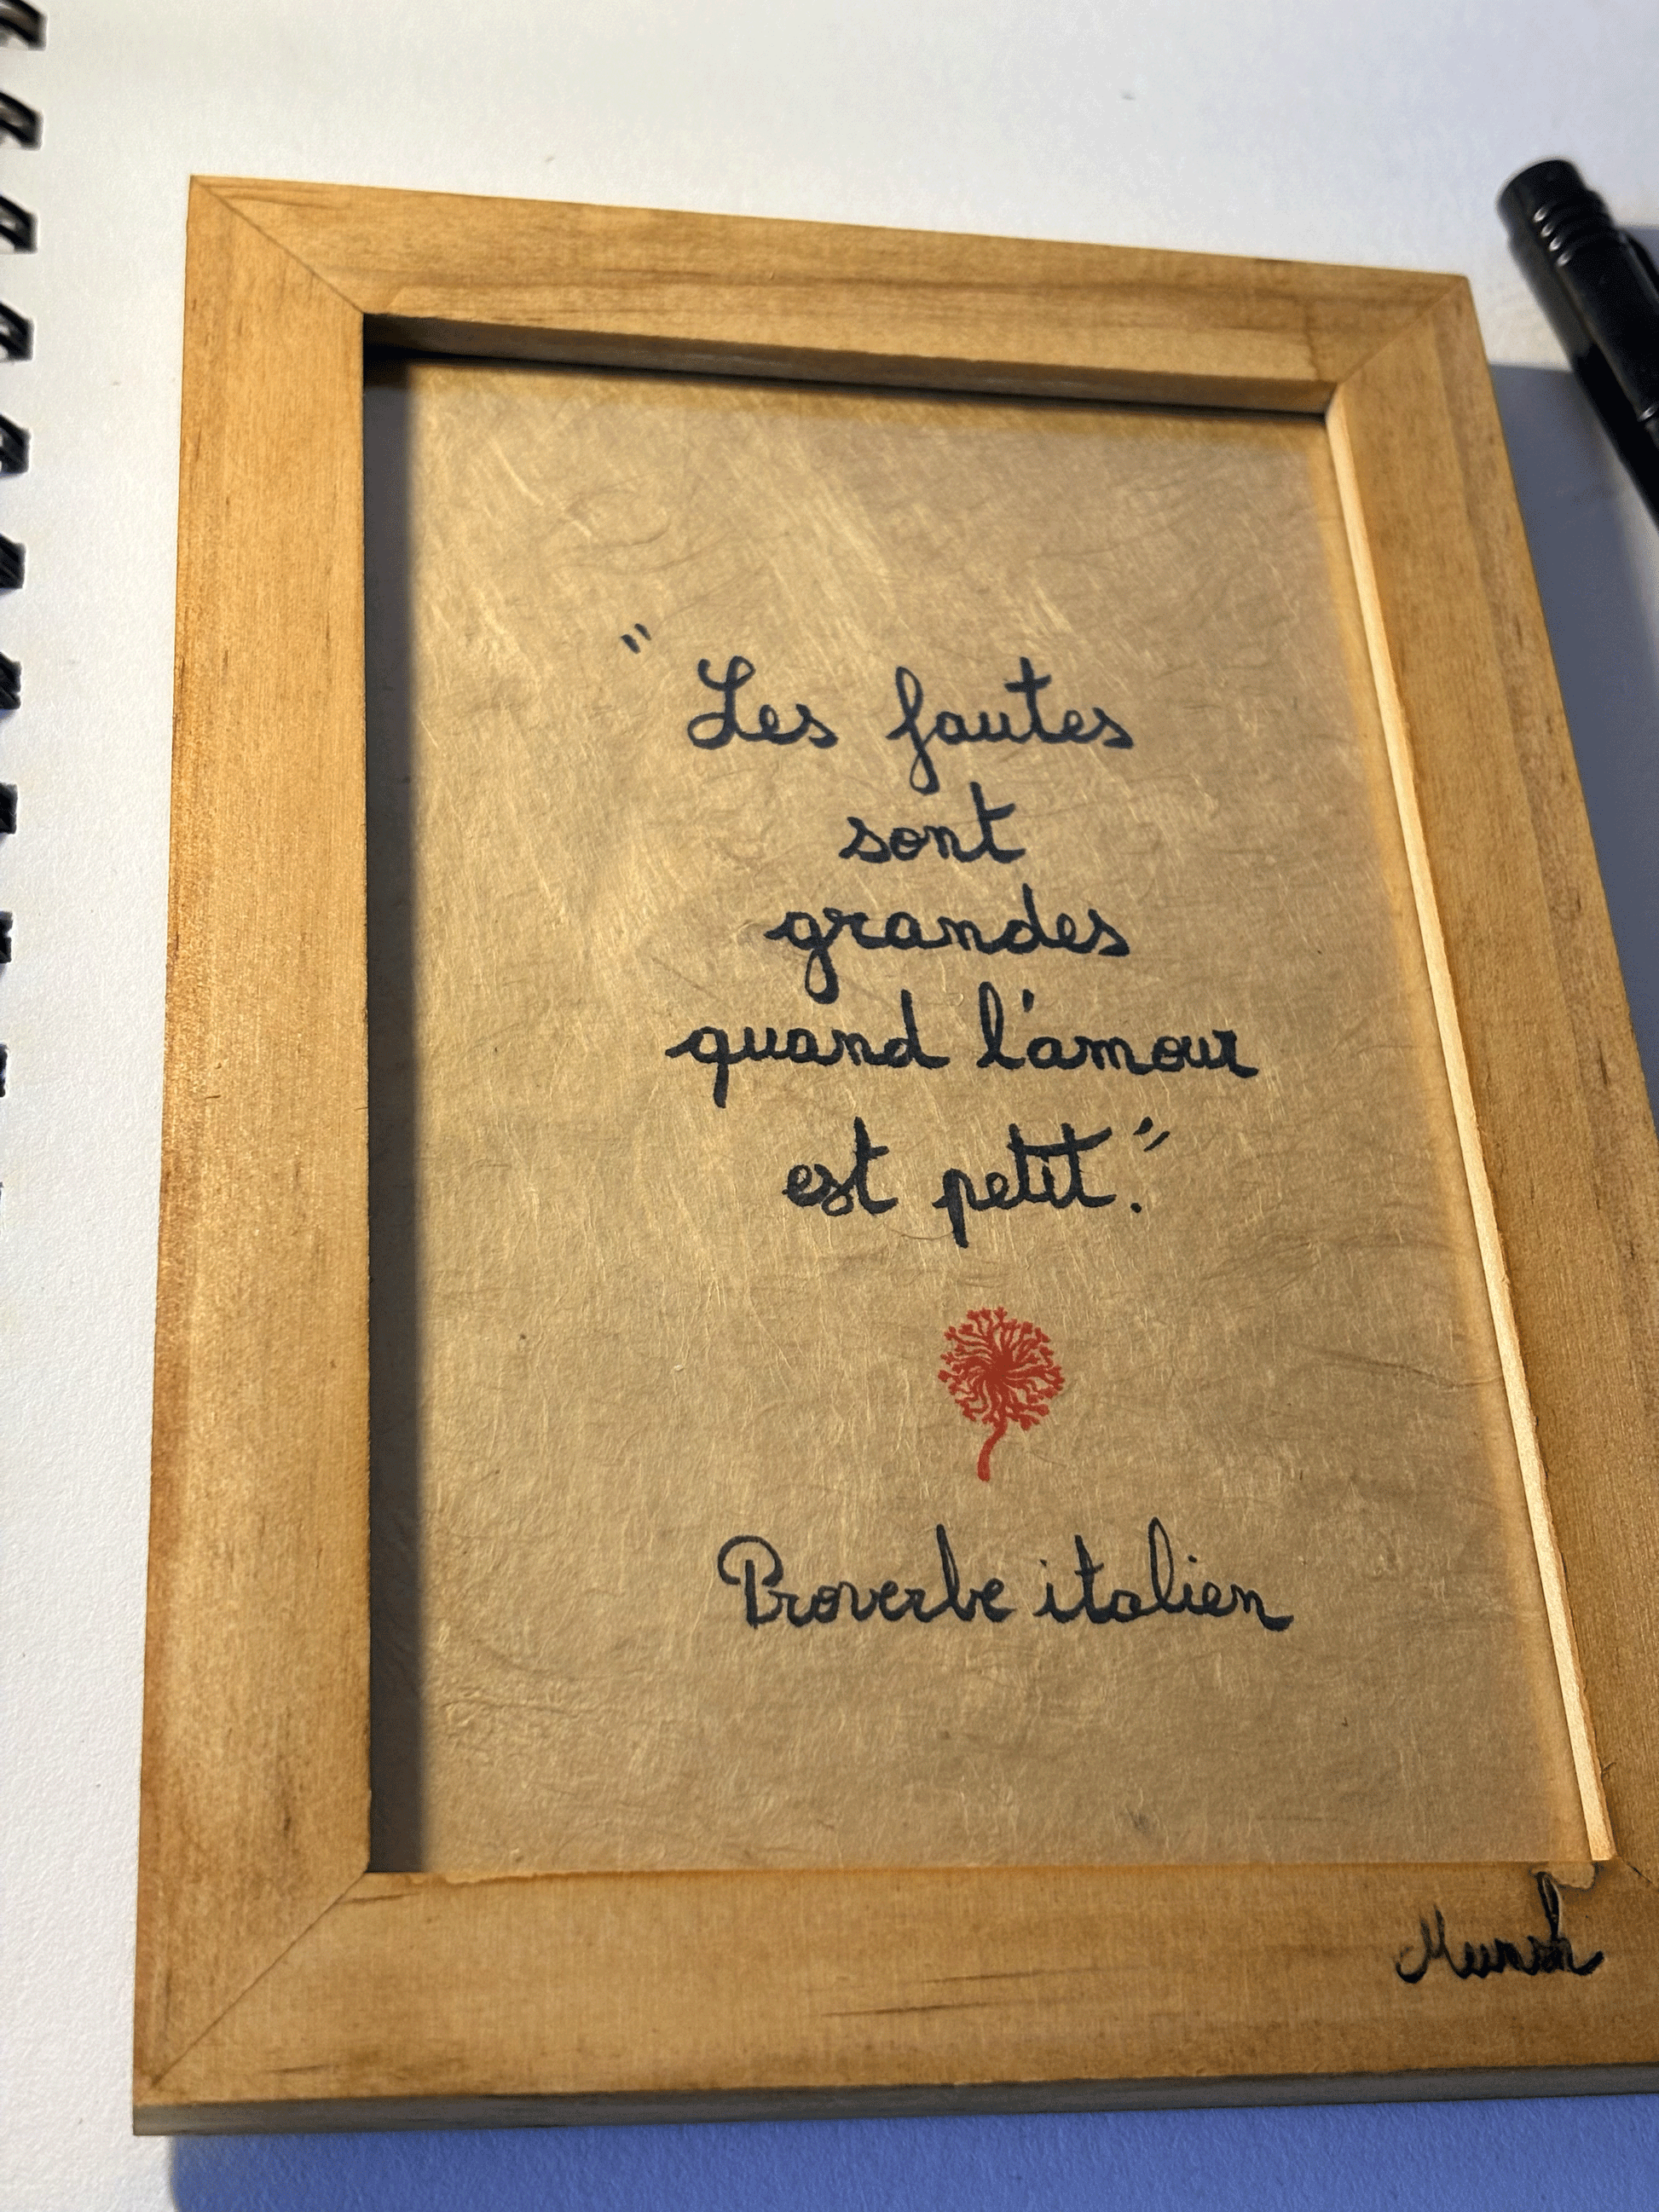 "Les fautes
sont
grandes
quand l'amour
est petit."
Proverbe italien